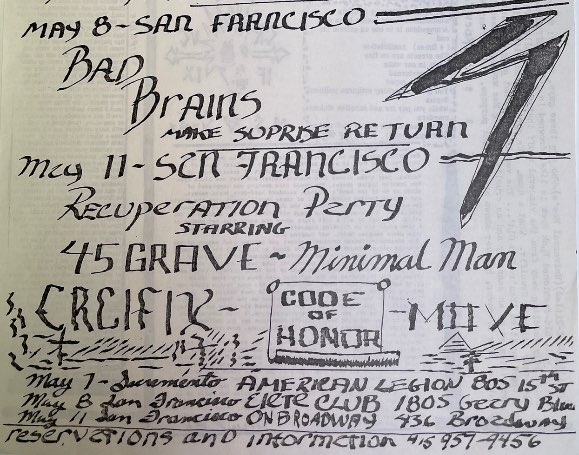 MAY 8 - SAN FRANCISCO
BAD
BRAINS
MAKE SUPRISE RETURN
May 11 - SAN FRANCISCO
RECUPERATION PARTY
STARRING
45 GRAVE ~ Minimal Man
CRCIFIX -
CODE
OF
HONOR
- MOVE
May 7 - Sacramento AMERICAN LEGION 805 15TH ST
May 8 San Francisco ELITE CLUB 1805 Geary Blvd
May 11 San Francisco ON BROADWAY 436 Broadway
reservations and information 415 957-4456